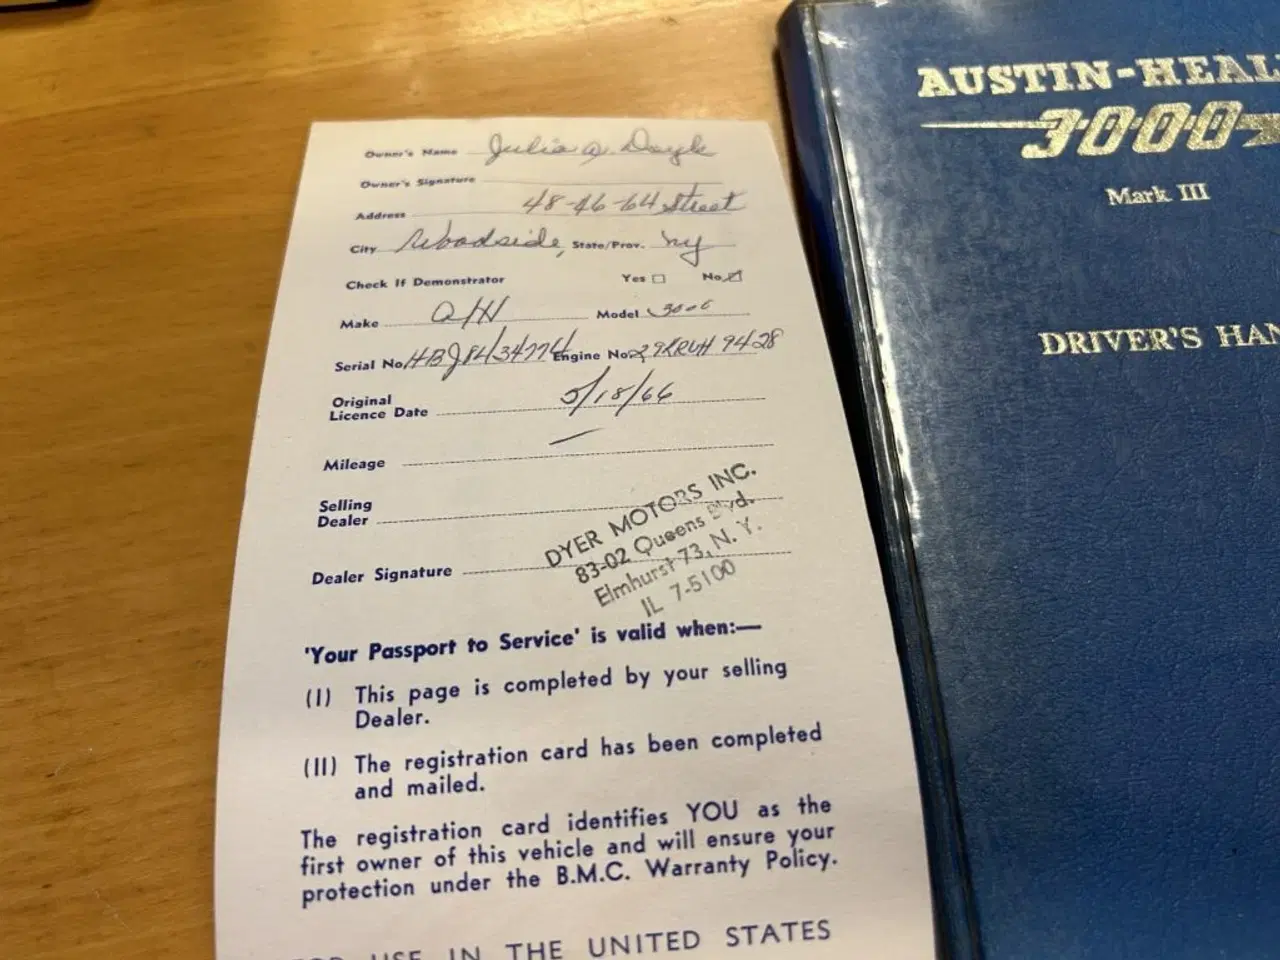 Owner's Name Julia A. Doyle
Owner's Signature
Address 48-46-64 Street
City Woodside, State/Prov. NY
Check If Demonstrator Yes No
Make A/H Model 3000
Serial No. HBJ8L/34774 Engine No. 29KRUH 9428
Original
Licence Date 5/18/66
Mileage —
Selling
Dealer
Dealer Signature
DYER MOTORS INC.
83-02 Queens Blvd.
Elmhurst 73, N. Y.
IL 7-5100
'Your Passport to Service' is valid when:—
(I) This page is completed by your selling
Dealer.
(II) The registration card has been completed
and mailed.
The registration card identifies YOU as the
first owner of this vehicle and will ensure your
protection under the B.M.C. Warranty Policy.
FOR USE IN THE UNITED STATES
AUSTIN-HEAL
3000
Mark III
DRIVER'S HAN